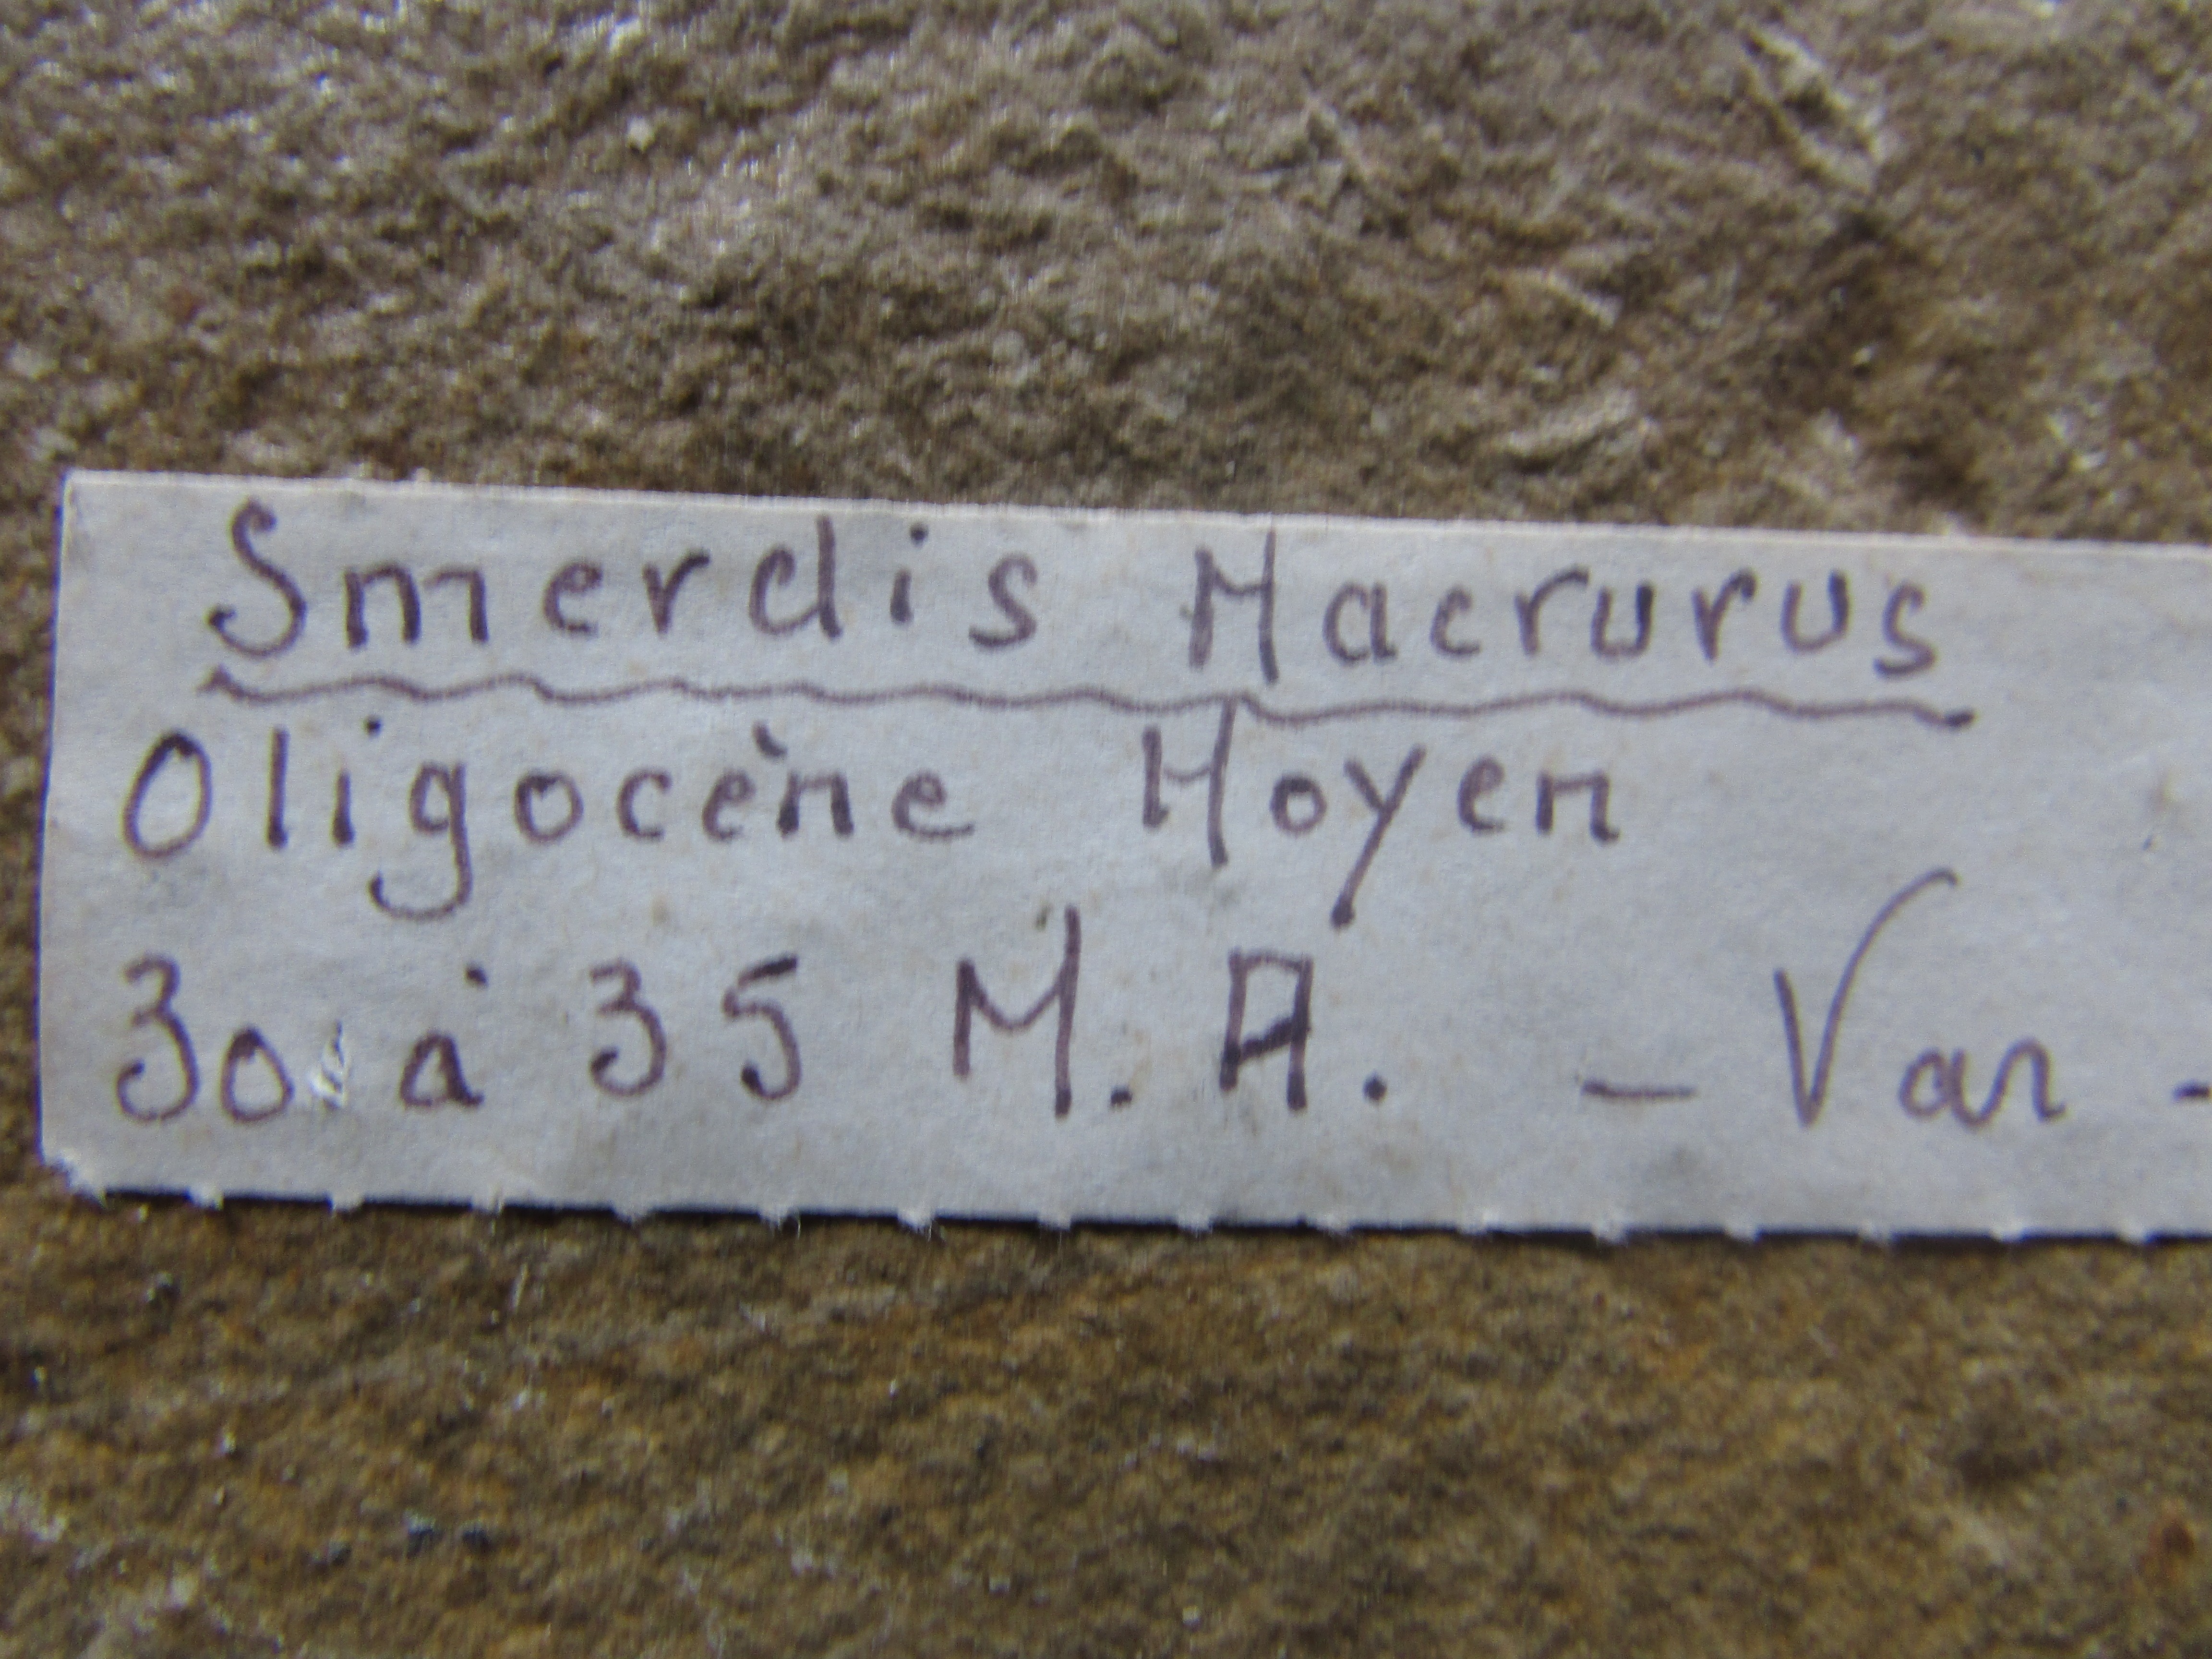 Smerdis Macrurus
Oligocène Moyen
30 à 35 M.A. - Var -